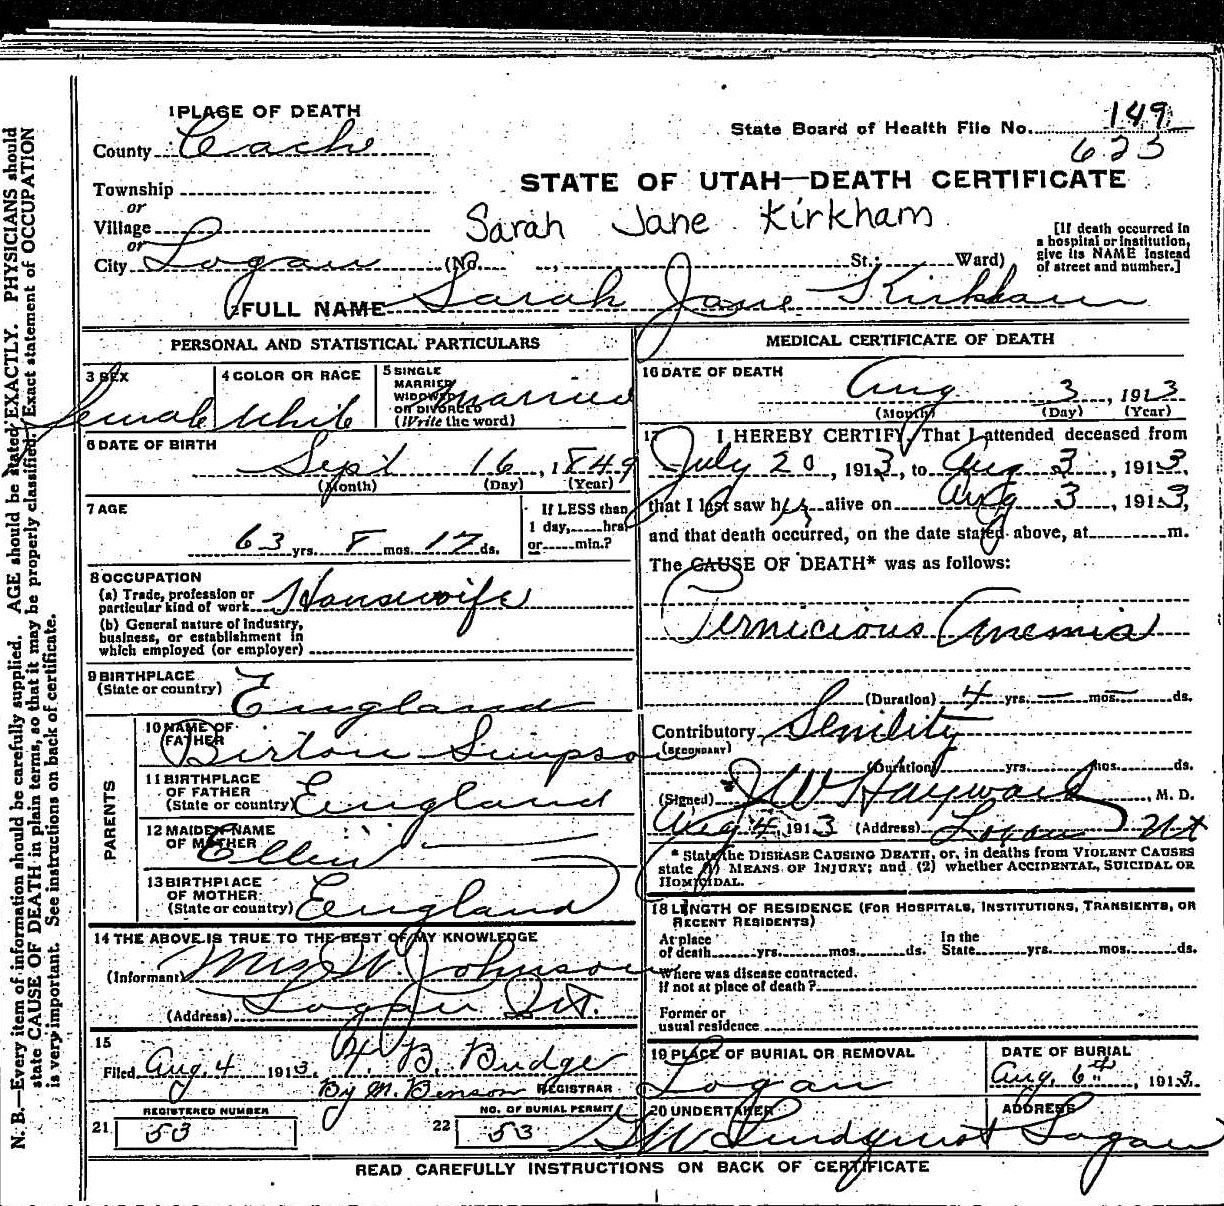 1 PLACE OF DEATH
County Cache
State Board of Health File No. 149
623
Township
STATE OF UTAH—DEATH CERTIFICATE
or
Village
Sarah Jane Kirkham
or
City Logan (No. , St.; Ward)
[If death occurred in
a hospital or institution,
give its NAME instead
of street and number.]
2 FULL NAME Sarah Jane Kirkham
PERSONAL AND STATISTICAL PARTICULARS
3 SEX
Female
4 COLOR OR RACE
White
5 SINGLE
MARRIED
WIDOWED
OR DIVORCED
(Write the word)
Married
6 DATE OF BIRTH
Sept 16, 1849
(Month) (Day) (Year)
7 AGE
63 yrs. 8 mos. 17 ds.
If LESS than
1 day, hrs.
or min.?
8 OCCUPATION
(a) Trade, profession or
particular kind of work Housewife
(b) General nature of industry,
business, or establishment in
which employed (or employer)
9 BIRTHPLACE
(State or country) England
PARENTS
10 NAME OF
FATHER
Birton Simpson
11 BIRTHPLACE
OF FATHER
(State or country) England
12 MAIDEN NAME
OF MOTHER
Ellen
13 BIRTHPLACE
OF MOTHER
(State or country) England
14 THE ABOVE IS TRUE TO THE BEST OF MY KNOWLEDGE
(Informant) W. Johnson
(Address) Logan Ut.
15
Filed Aug. 4 1913. B. Budge
By M. Benson REGISTRAR
REGISTERED NUMBER
21 53
NO. OF BURIAL PERMIT
22 53
MEDICAL CERTIFICATE OF DEATH
16 DATE OF DEATH
Aug 3, 1913
(Month) (Day) (Year)
17 I HEREBY CERTIFY, That I attended deceased from
July 20, 1913, to Aug 3, 1913,
that I last saw her alive on Aug 3, 1913,
and that death occurred, on the date stated above, at m.
The CAUSE OF DEATH* was as follows:
Pernicious Anemia
(Duration) 4 yrs. — mos. — ds.
Contributory Senility
(SECONDARY)
(Duration) yrs. mos. ds.
(Signed) J W Hayward, M. D.
Aug 4, 1913 (Address) Logan Ut
* State the DISEASE CAUSING DEATH, or, in deaths from VIOLENT CAUSES
state (1) MEANS OF INJURY; and (2) whether ACCIDENTAL, SUICIDAL OR
HOMICIDAL.
18 LENGTH OF RESIDENCE (FOR HOSPITALS, INSTITUTIONS, TRANSIENTS, OR
RECENT RESIDENTS)
At place
of death yrs. mos. ds.
In the
State yrs. mos. ds.
Where was disease contracted.
If not at place of death?
Former or
usual residence
19 PLACE OF BURIAL OR REMOVAL
Logan
DATE OF BURIAL
Aug. 6th, 1913.
20 UNDERTAKER
W Lindquist
ADDRESS
Logan
READ CAREFULLY INSTRUCTIONS ON BACK OF CERTIFICATE
N. B.—Every item of information should be carefully supplied. AGE should be stated EXACTLY. PHYSICIANS should
state CAUSE OF DEATH in plain terms, so that it may be properly classified. Exact statement of OCCUPATION
is very important. See instructions on back of certificate.